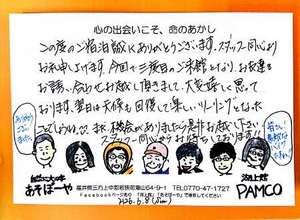 心の出会いこそ、命のあかし
この度のご宿泊誠にありがとうございます。スタッフ一同心より
お礼申し上げます。今回で三度目のご来館となり、お友達を
お誘い、合わせてお越し頂きまして、大変嬉しく思って
おります。翌日は天候も回復して楽しいツーリングとなった
ことでしょうね。また、機会がありましたら是非お越し下さい
スタッフ一同心よりお待ちしております!!
ありがとうございました
皆さん
あそぼーや
湖上館
PAMCO
福井県三方上中郡若狭町海山64-9-1 TEL0770-47-1727
Facebookページあり